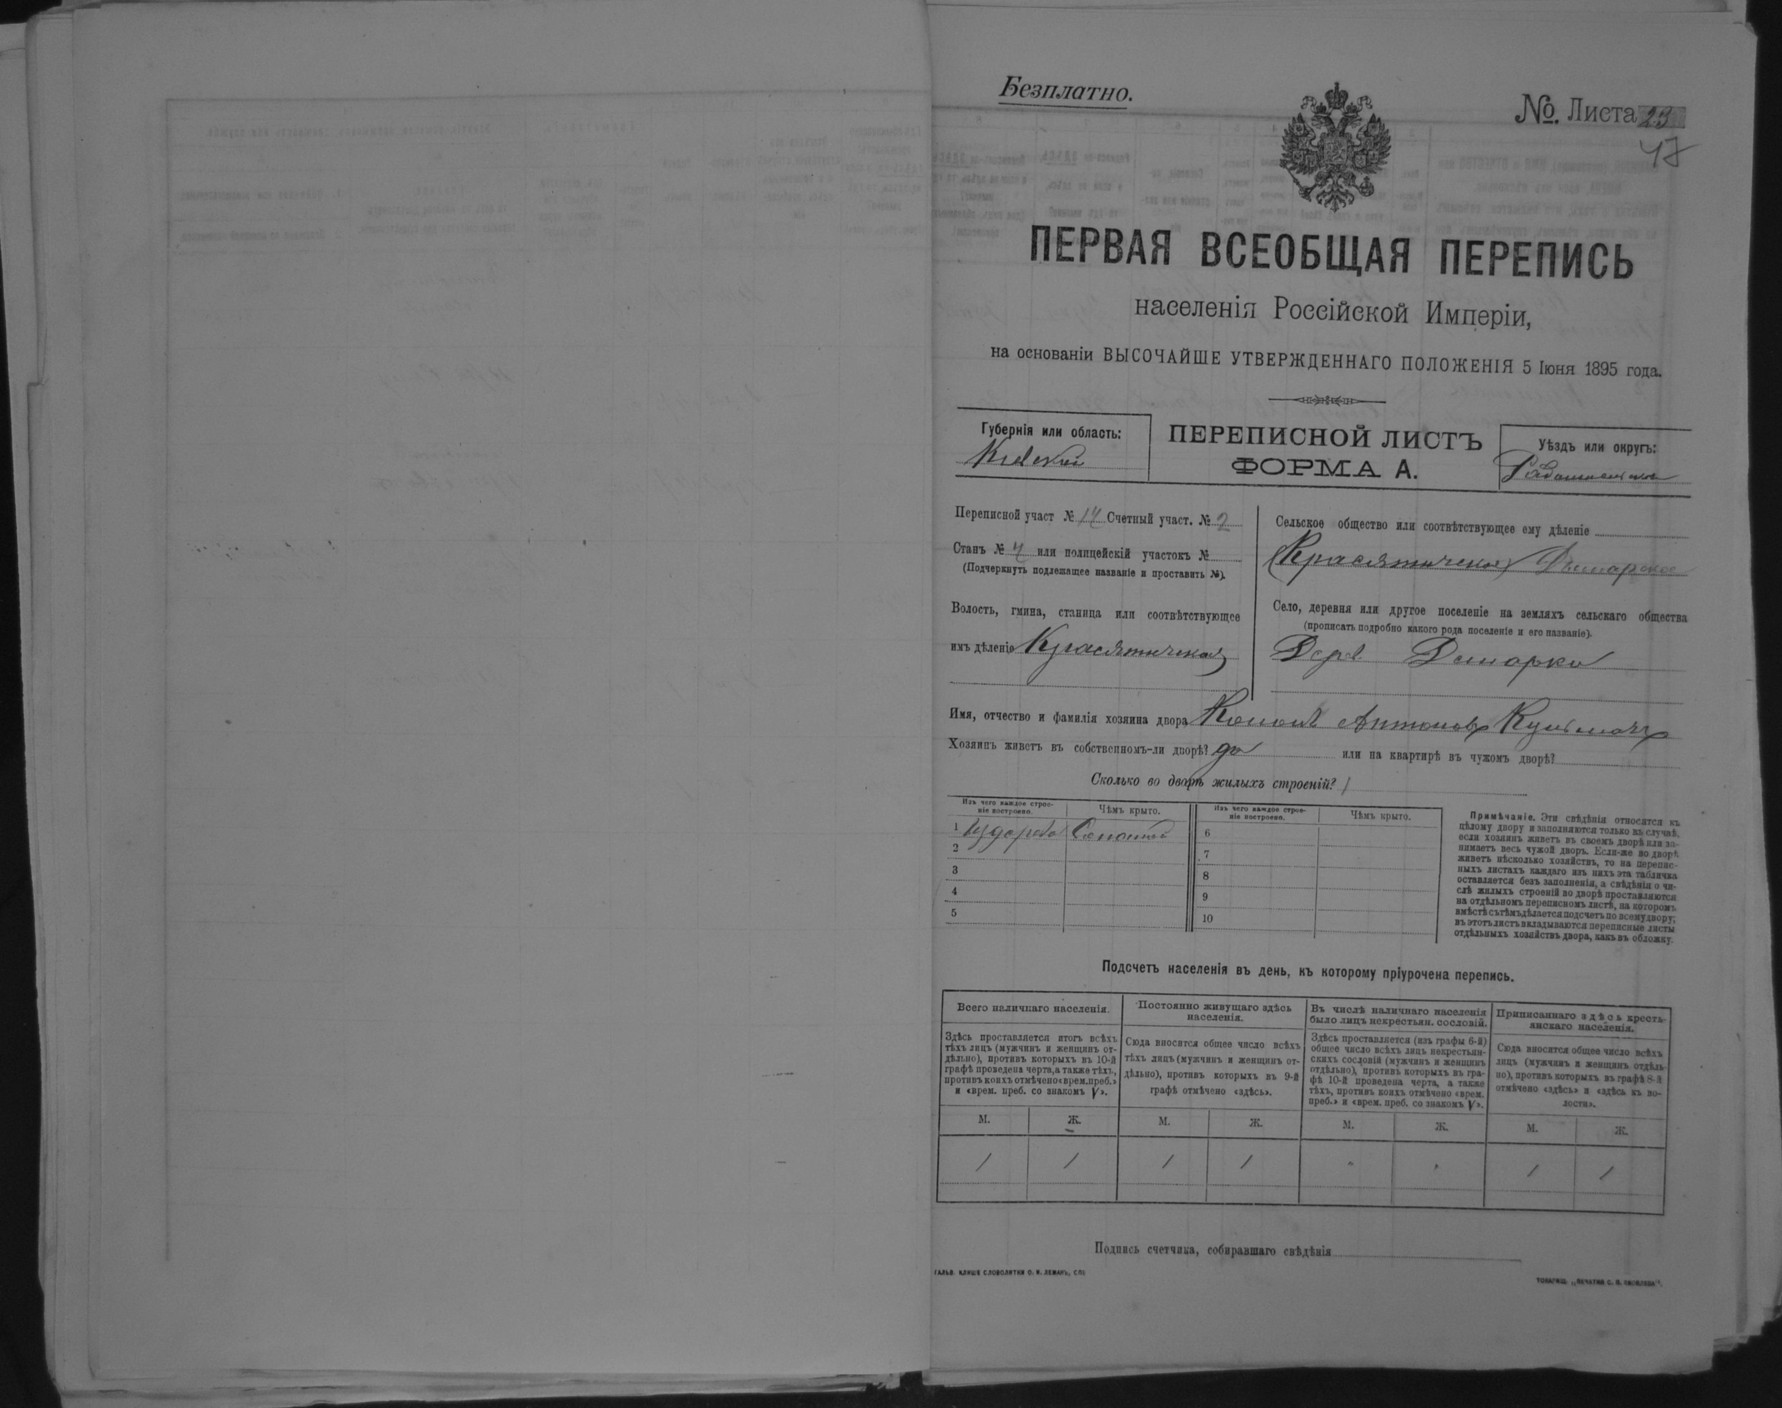 Безплатно.
№. Листа 23
47
ПЕРВАЯ ВСЕОБЩАЯ ПЕРЕПИСЬ
населенія Россійской Имперіи,
на основаніи ВЫСОЧАЙШЕ УТВЕРЖДЕННАГО ПОЛОЖЕНІЯ 5 Іюня 1895 года.
Губернія или область:
Кіевская
ПЕРЕПИСНОЙ ЛИСТЪ
ФОРМА А.
Уѣздъ или округъ:
Переписной участ № 14 Счетный участ. № 2
Станъ № 4 или полицейскій участокъ №
(Подчеркнуть подлежащее названіе и проставить №).
Волость, гмина, станица или соотвѣтствующее
имъ дѣленіе Красятичская
Сельское общество или соотвѣтствующее ему дѣленіе
(Красятичское)
Село, деревня или другое поселеніе на земляхъ сельскаго общества
(прописать подробно какого рода поселеніе и его названіе).
Дерев.
Имя, отчество и фамилія хозяина двора Кононъ Антоновъ
Хозяинъ живетъ въ собственномъ-ли дворѣ? да или на квартирѣ въ чужомъ дворѣ?
Сколько во дворѣ жилыхъ строеній? 1
Изъ чего каждое строе-
ніе построено.
Чѣмъ крыто.
Изъ чего каждое строе-
ніе построено.
Чѣмъ крыто.
1 Изъ дерева Соломой
2
3
4
5
6
7
8
9
10
Примѣчаніе. Эти свѣдѣнія относятся къ
цѣлому двору и заполняются только въ случаѣ,
если хозяинъ живетъ въ своемъ дворѣ или за-
нимаетъ весь чужой дворъ. Если-же во дворѣ
живетъ нѣсколько хозяйствъ, то на перепис-
ныхъ листахъ каждаго изъ нихъ эта табличка
оставляется безъ заполненія, а свѣдѣнія о чи-
слѣ жилыхъ строеній во дворѣ проставляются
на отдѣльномъ переписномъ листѣ, на которомъ
вмѣстѣ съ тѣмъ дѣлается подсчетъ по всему двору;
въ этотъ листъ вкладываются переписные листы
отдѣльныхъ хозяйствъ двора, какъ въ обложку.
Подсчетъ населенія въ день, къ которому пріурочена перепись.
Всего наличнаго населенія.
Здѣсь проставляется итогъ всѣхъ
тѣхъ лицъ (мужчинъ и женщинъ от-
дѣльно), противъ которыхъ въ 10-й
графѣ проведена черта, а также тѣхъ,
противъ коихъ отмѣчено «врем. преб.»
и «врем. преб. со знакомъ V».
Постоянно живущаго здѣсь
населенія.
Сюда вносится общее число всѣхъ
тѣхъ лицъ (мужчинъ и женщинъ от-
дѣльно), противъ которыхъ въ 9-й
графѣ отмѣчено «здѣсь».
Въ числѣ наличнаго населенія
было лицъ некрестьян. сословій.
Здѣсь проставляется (изъ графы 6-й)
общее число всѣхъ лицъ некрестьян-
скихъ сословій (мужчинъ и женщинъ
отдѣльно), противъ которыхъ въ гра-
фѣ 10-й проведена черта, а также
тѣхъ, противъ коихъ отмѣчено «врем.
преб.» и «врем. преб. со знакомъ V».
Приписаннаго здѣсь кресть-
янскаго населенія.
Сюда вносится общее число всѣхъ
лицъ (мужчинъ и женщинъ отдѣль-
но), противъ которыхъ въ графѣ 8-й
отмѣчено «здѣсь» и «здѣсь въ во-
лости».
М. Ж. М. Ж. М. Ж. М. Ж.
1 1 1 1 " " 1 1
Подпись счетчика, собиравшаго свѣдѣнія
ГАЛЬВ. КЛИШЕ СЛОВОЛИТНИ О. И. ЛЕМАНЪ, СПБ
ТОВАРИЩ. „ПЕЧАТНЯ С. П. ЯКОВЛЕВА".